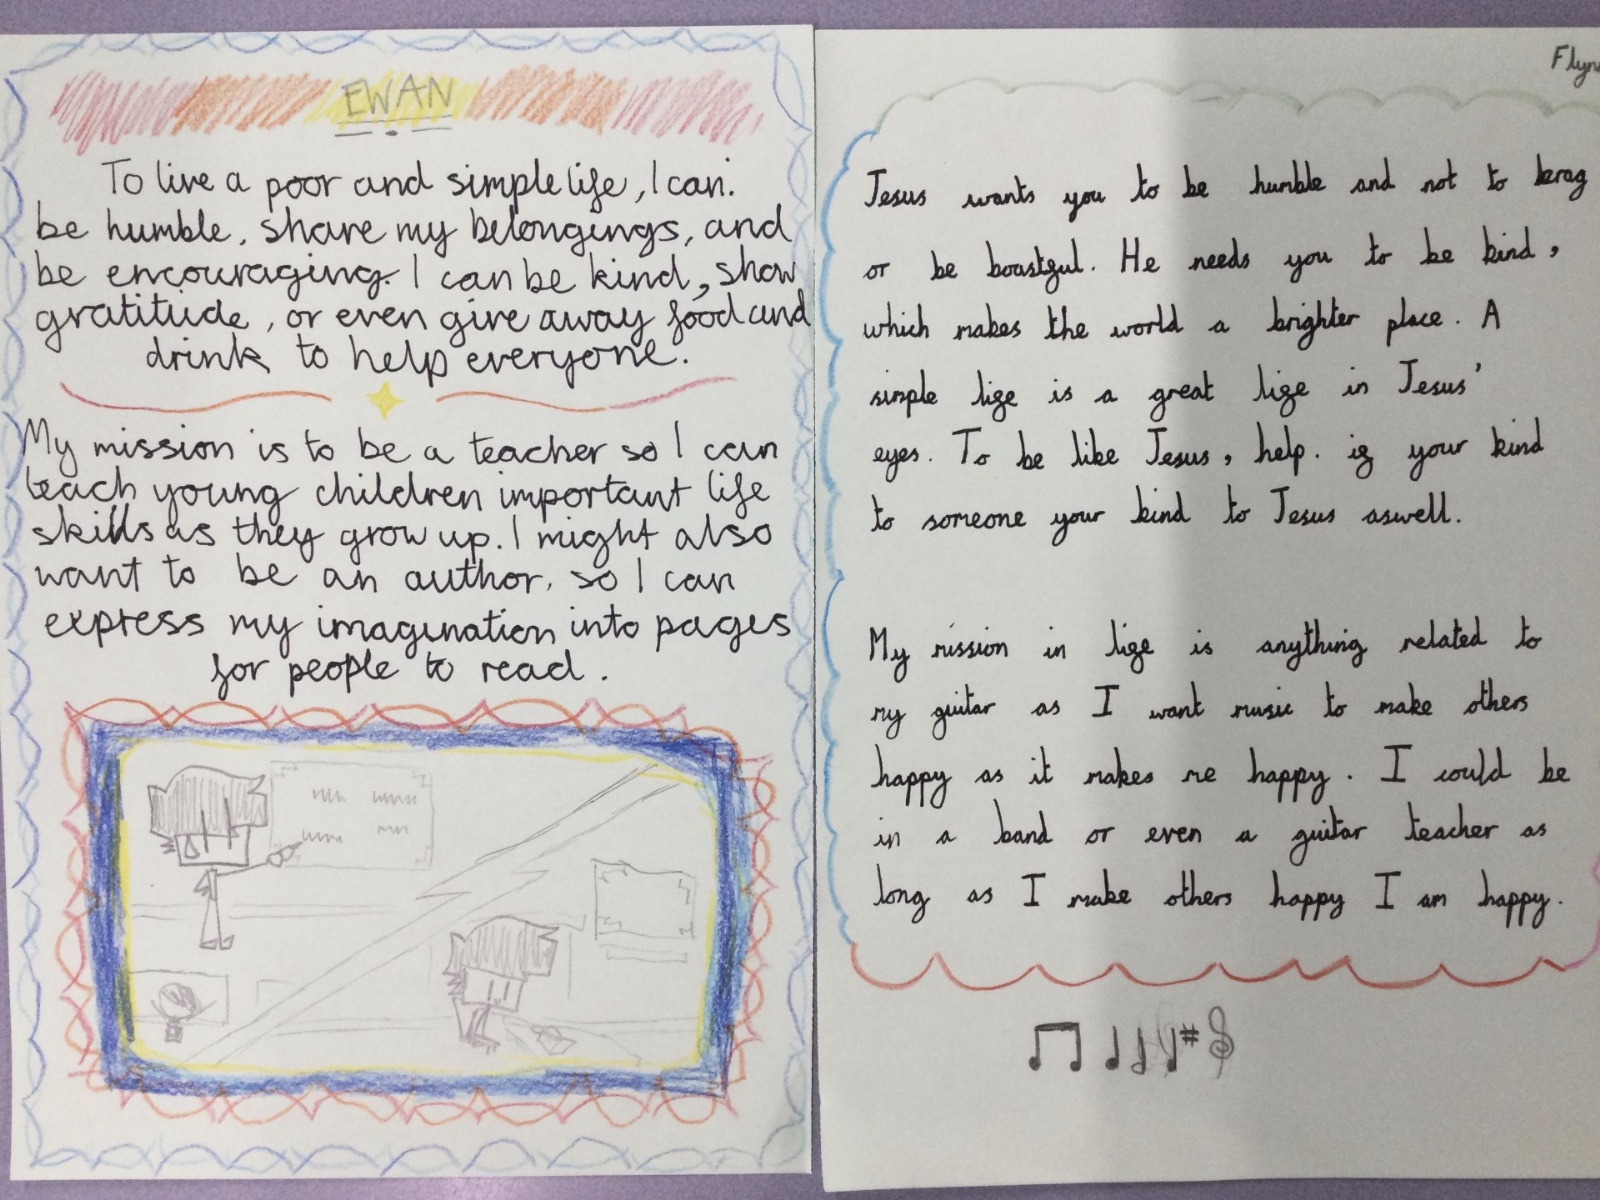 EWAN
To live a poor and simple life, I can.
be humble, share my belongings, and
be encouraging. I can be kind, show
gratitude, or even give away food and
drink to help everyone.
My mission is to be a teacher so I can
teach young children important life
skills as they grow up. I might also
want to be an author, so I can
express my imagination into pages
for people to read.
Flynn
Jesus wants you to be humble and not to brag
or be boastful. He needs you to be kind,
which makes the world a brighter place. A
simple life is a great life in Jesus'
eyes. To be like Jesus, help. if your kind
to someone your kind to Jesus aswell.
My mission in life is anything related to
my guitar as I want music to make others
happy as it makes me happy. I could be
in a band or even a guitar teacher as
long as I make others happy I am happy.